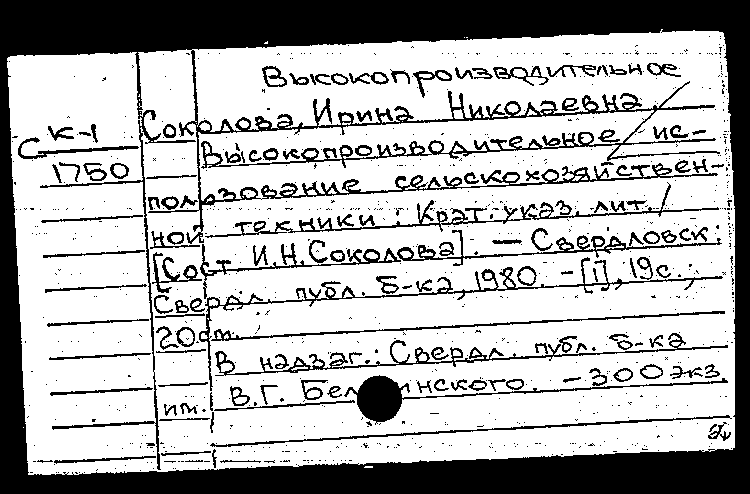 Высокопроизводительное
Соколова, Ирина Николаевна.
С К-1
1750
Высокопроизводительное ис-
пользование сельскохозяйствен-
ной техники : Крат. указ. лит. /
[Сост. И.Н. Соколова]. — Свердловск :
Свердл. публ. б-ка, 1980. - [1], 19с. ;
20 см.
В надзаг.: Свердл. публ. б-ка
им. В.Г. Белинского. - 300 экз.